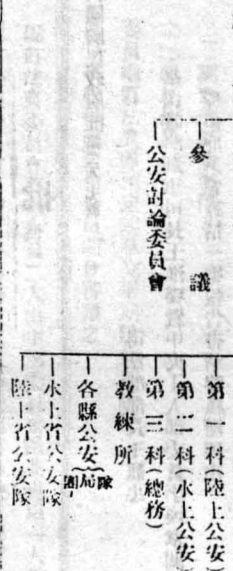 參議
公安討論委員會
第一科(陸上公安)
第二科(水上公安
第三科(總務)
教練所
各縣公安(隊局
水上省公安隊
陸上省公安隊